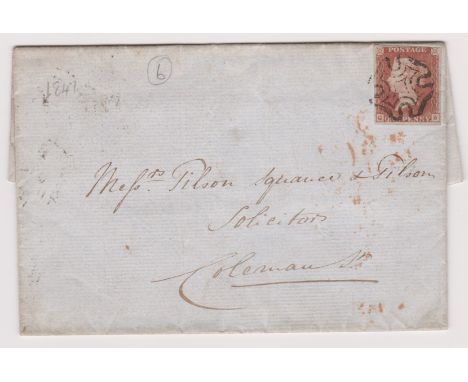 6
1841
POSTAGE
Messrs Tilson Squance & Tilson
Solicitors
Coleman St